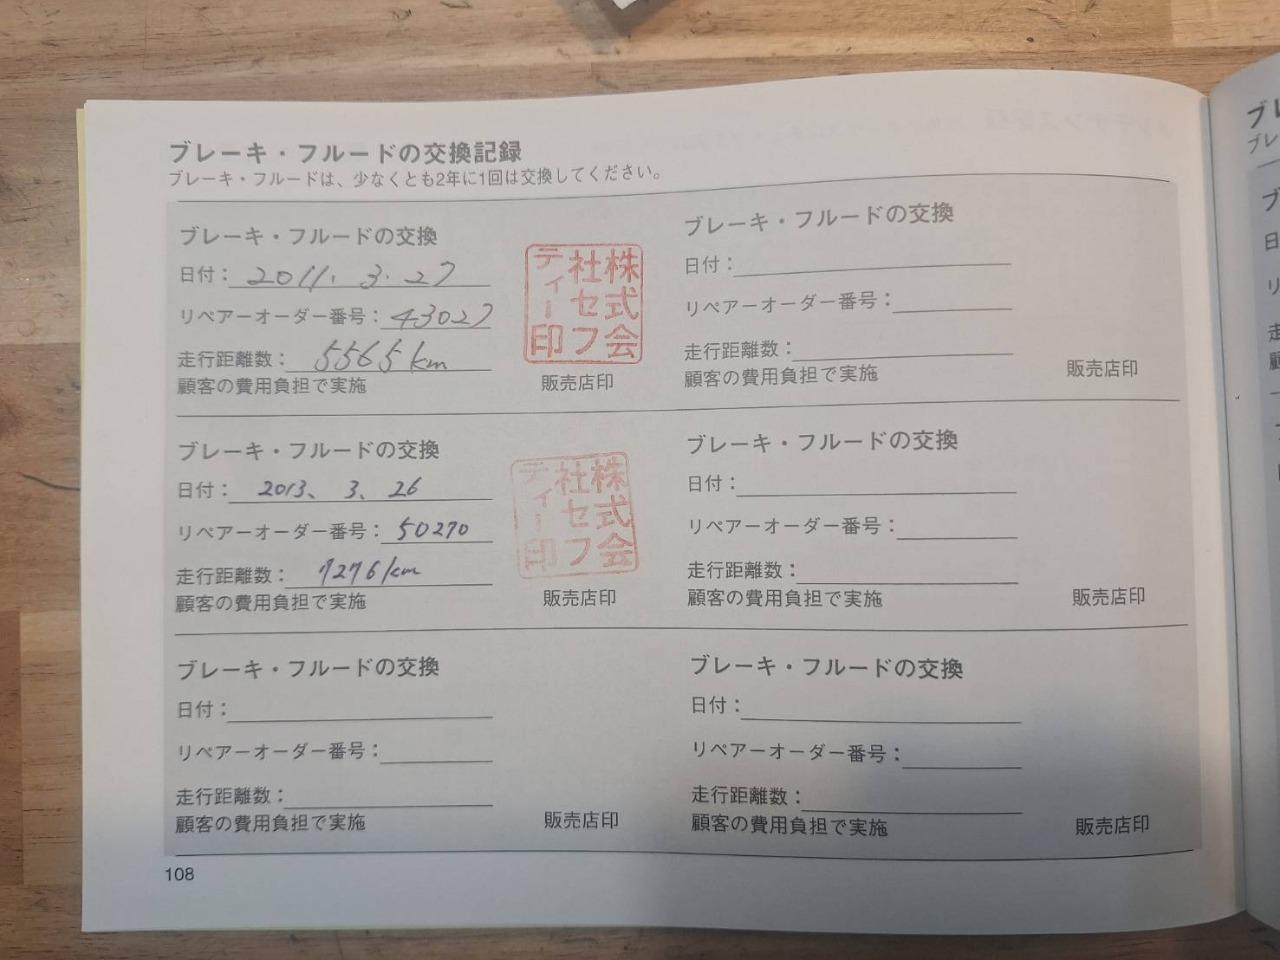 ブレーキ・フルードの交換記録
ブレーキ・フルードは、少なくとも2年に1回は交換してください。
ブレーキ・フルードの交換
日付：2011.3.27
リペアーオーダー番号：43027
走行距離数：5565km
顧客の費用負担で実施
株式会
社セフ
ティー印
販売店印
ブレーキ・フルードの交換
日付：2013、3、26
リペアーオーダー番号：50270
走行距離数：7276km
顧客の費用負担で実施
株式会
社セフ
ティー印
販売店印
ブレーキ・フルードの交換
日付：
リペアーオーダー番号：
走行距離数：
顧客の費用負担で実施
販売店印
ブレーキ・フルードの交換
日付：
リペアーオーダー番号：
走行距離数：
顧客の費用負担で実施
販売店印
ブレーキ・フルードの交換
日付：
リペアーオーダー番号：
走行距離数：
顧客の費用負担で実施
販売店印
ブレーキ・フルードの交換
日付：
リペアーオーダー番号：
走行距離数：
顧客の費用負担で実施
販売店印
108